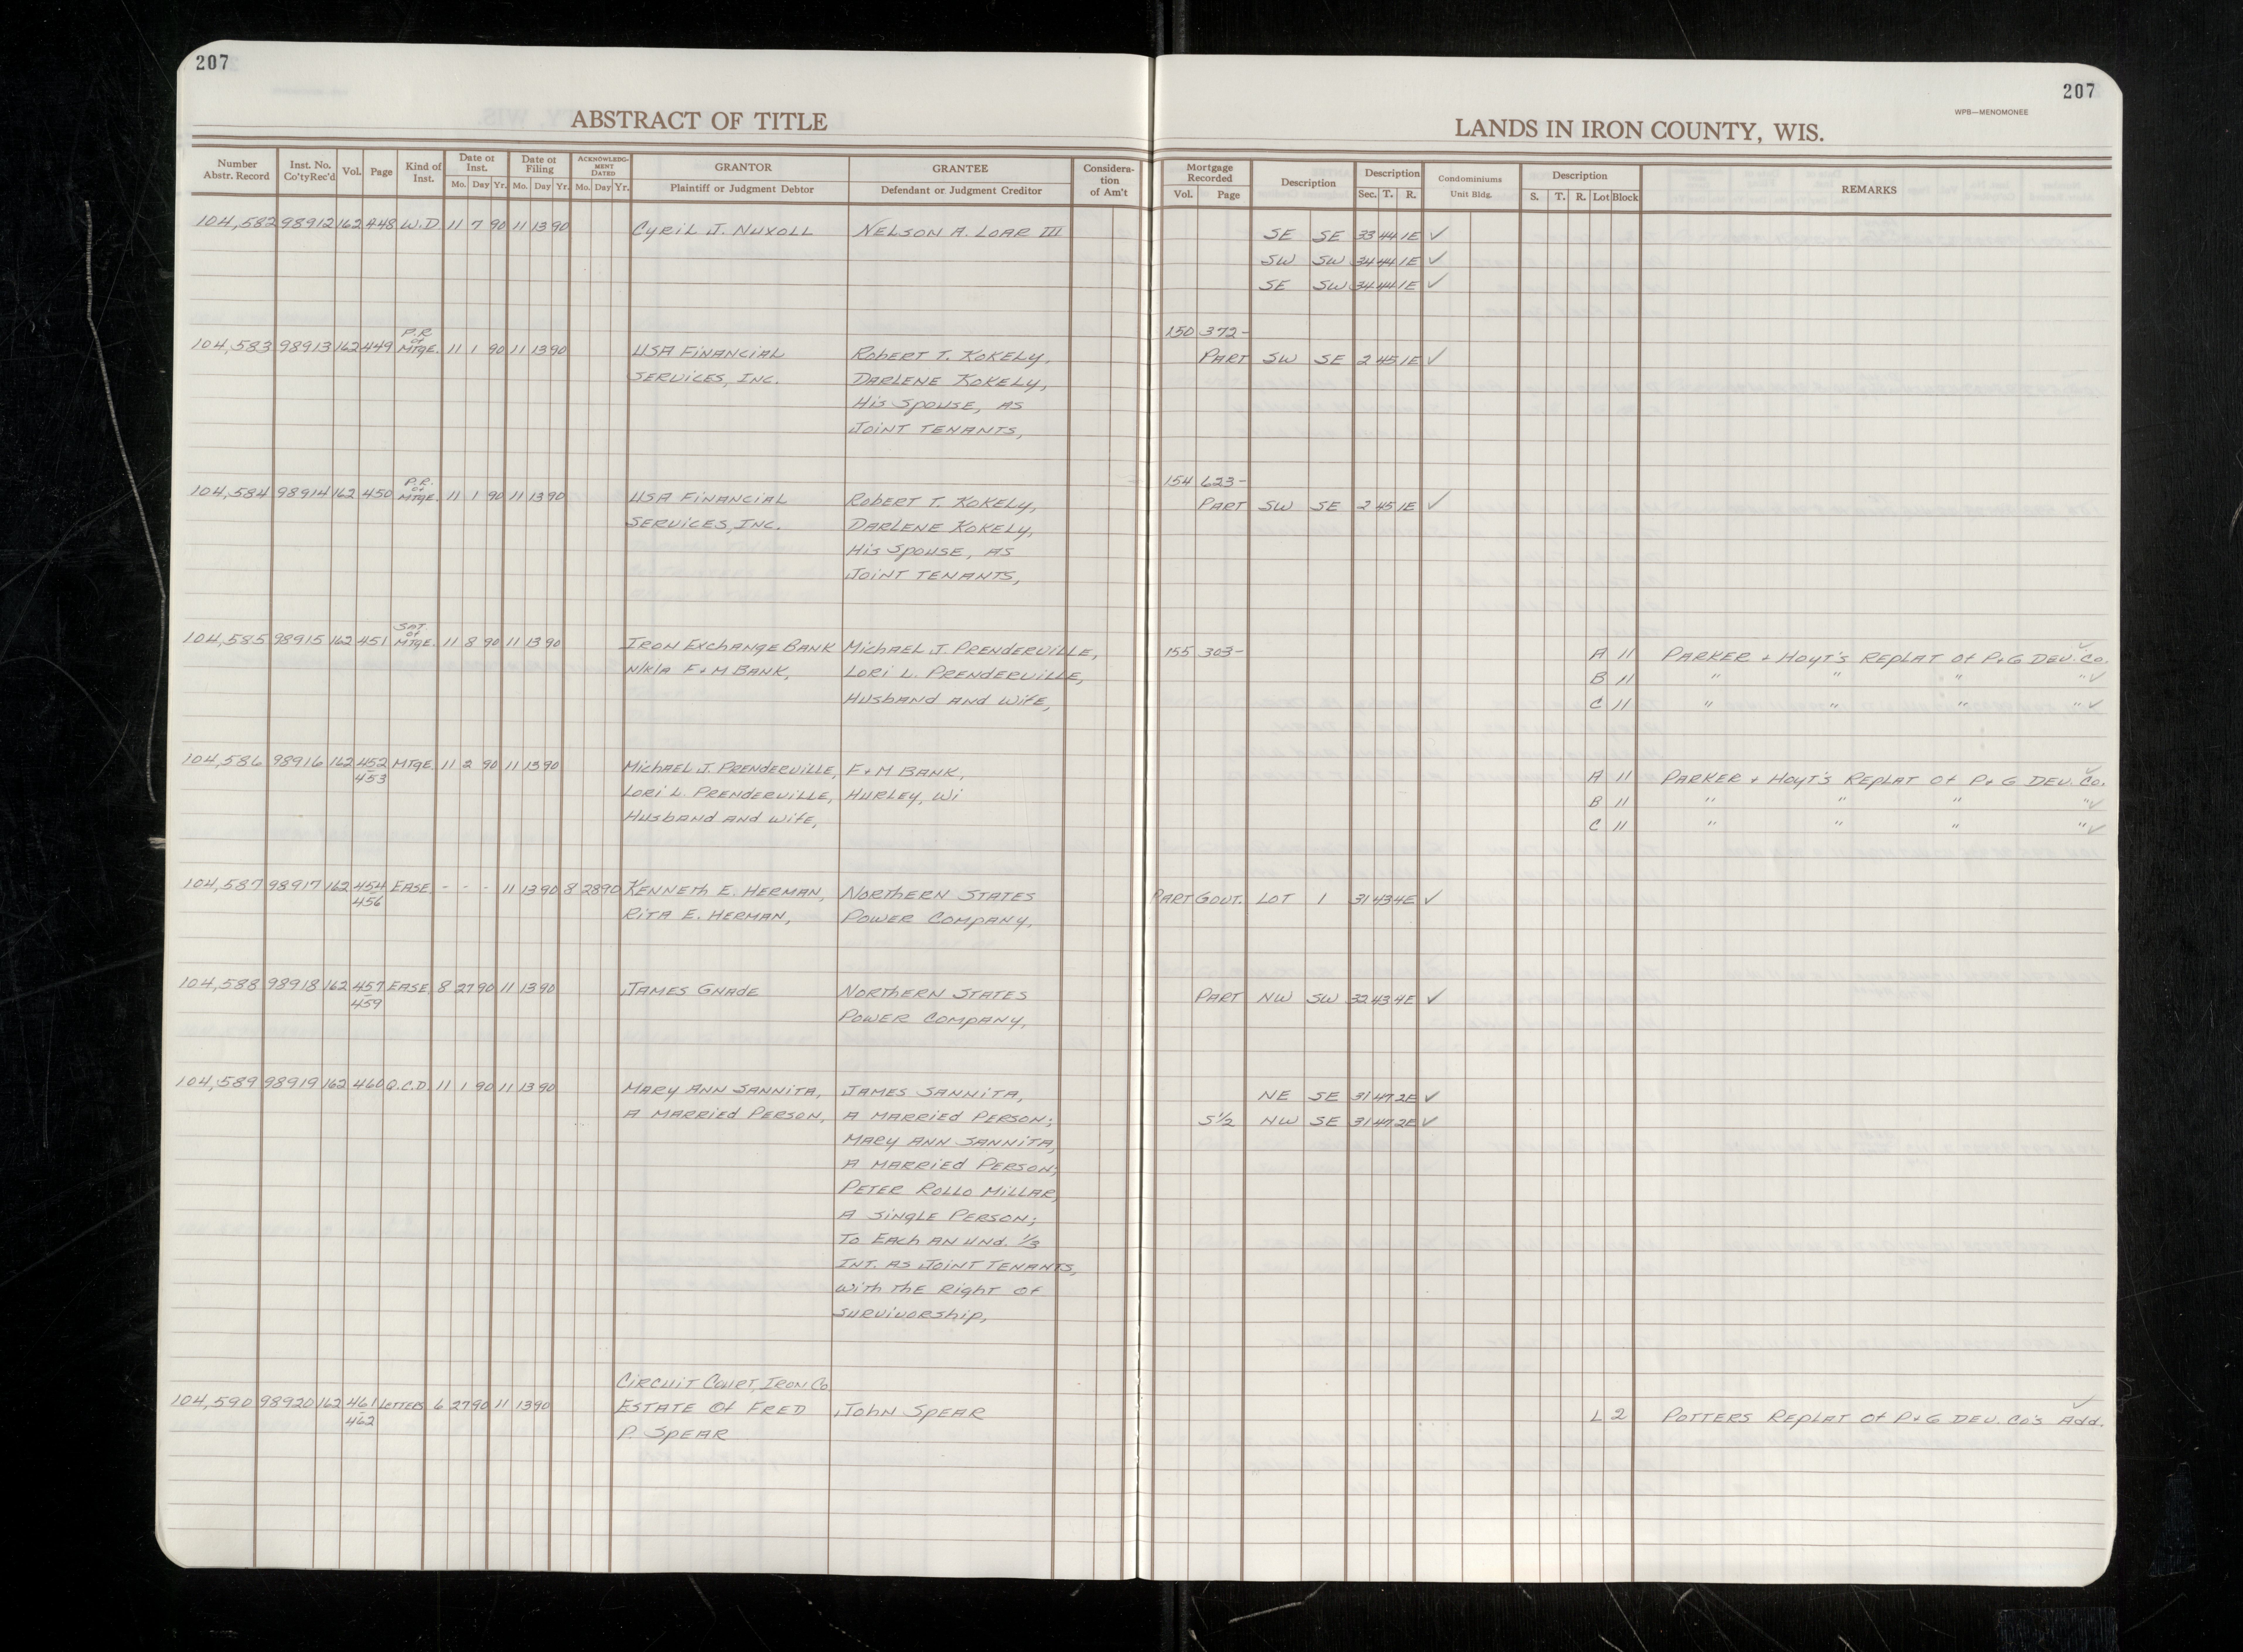 207
207
WPB—MENOMONEE
ABSTRACT OF TITLE
LANDS IN IRON COUNTY, WIS.
Number Abstr. Record Inst. No. Co'ty Rec'd Vol. Page Kind of Inst. Date of Inst. Mo. Day Yr. Date of Filing Mo. Day Yr. ACKNOWLEDGMENT DATED Mo. Day Yr. GRANTOR Plaintiff or Judgment Debtor GRANTEE Defendant or Judgment Creditor Consideration of Am't Mortgage Recorded Vol. Page Description Description Sec. T. R. Condominiums Unit Bldg. Description S. T. R. Lot Block REMARKS
104,582 98912 162 448 W.D 11 7 90 11 13 90 Cyril J. Nuxoll Nelson A. Loar III SE SE 33 44 1E ✓
SW SW 34 44 1E ✓
SE SW 34 44 1E ✓
P.R. of 150 372-
104,583 98913 162 449 MTGE. 11 1 90 11 13 90 USA Financial Robert T. Kokely, PART SW SE 2 45 1E ✓
Services, Inc. Darlene Kokely,
His Spouse, as
Joint Tenants,
P.R. of 154 623-
104,584 98914 162 450 MTGE. 11 1 90 11 13 90 USA Financial Robert T. Kokely, PART SW SE 2 45 1E ✓
Services, Inc. Darlene Kokely,
His Spouse, as
Joint Tenants,
SAT. of
104,585 98915 162 451 MTGE. 11 8 90 11 13 90 Iron Exchange Bank Michael J. Prenderville, 155 303- A 11 Parker + Hoyt's Replat of P+G Dev. Co. ✓
N/K/A F+M Bank, Lori L. Prenderville, B 11 " " " " ✓
Husband and Wife, C 11 " " " " ✓
104,586 98916 162 452-453 MTGE. 11 2 90 11 13 90 Michael J. Prenderville, F+M Bank, A 11 Parker + Hoyt's Replat of P+G Dev. Co. ✓
Lori L. Prenderville, Hurley, Wi B 11 " " " " ✓
Husband and Wife, C 11 " " " " ✓
104,587 98917 162 454-456 EASE. - - - 11 13 90 8 28 90 Kenneth E. Herman, Northern States PART GOVT. LOT 1 31 43 4E ✓
Rita E. Herman, Power Company,
104,588 98918 162 457-459 EASE. 8 27 90 11 13 90 James Gnade Northern States PART NW SW 32 43 4E ✓
Power Company,
104,589 98919 162 460 Q.C.D. 11 1 90 11 13 90 Mary Ann Sannita, James Sannita, NE SE 31 47 2E ✓
A Married Person, A Married Person; S½ NW SE 31 47 2E ✓
Mary Ann Sannita,
A Married Person;
Peter Rollo Millar,
A Single Person;
To Each an Und. 1/3
Int. as Joint Tenants,
With the Right of
Survivorship,
Circuit Court, Iron Co.
104,590 98920 162 461-462 Letters 6 27 90 11 13 90 Estate of Fred John Spear L 2 Potters Replat of P+G Dev. Co's Add. ✓
P. Spear